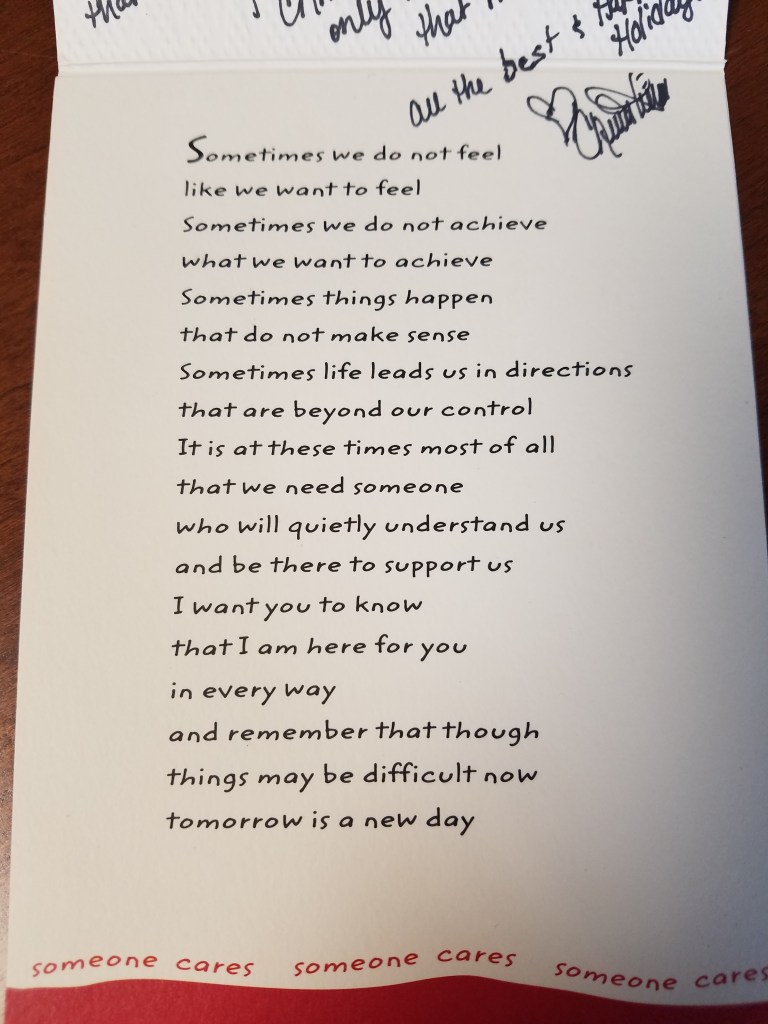 that
only
that
all the best &
Holiday
Sometimes we do not feel
like we want to feel
Sometimes we do not achieve
what we want to achieve
Sometimes things happen
that do not make sense
Sometimes life leads us in directions
that are beyond our control
It is at these times most of all
that we need someone
who will quietly understand us
and be there to support us
I want you to know
that I am here for you
in every way
and remember that though
things may be difficult now
tomorrow is a new day
someone cares someone cares someone cares